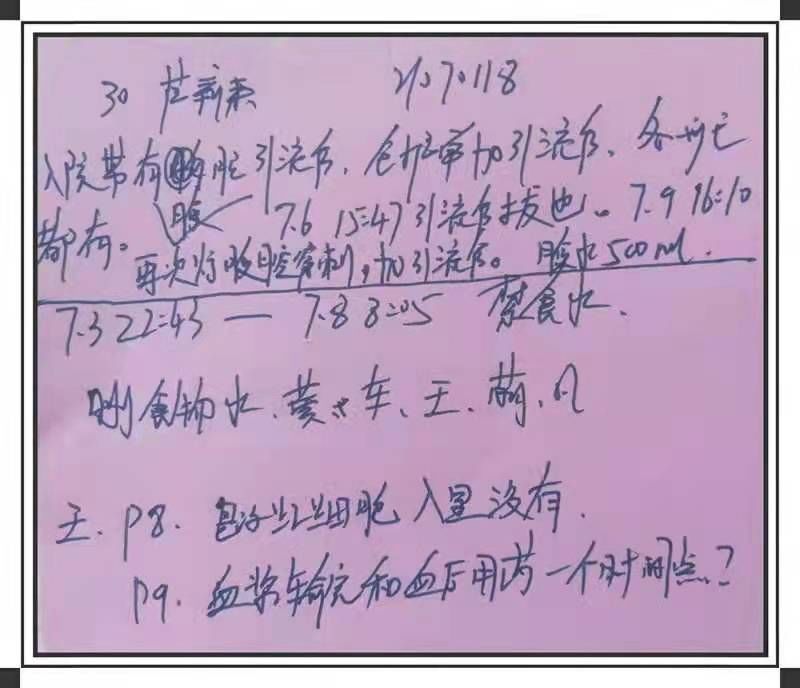 30 21070118
入院带有腹腔引流管、 引流管、各班
都有。腹 7.6 15:47引流管拔也。7.9 16:10
再次行腹腔穿刺,加引流管。腹水500ml.
7.3 22:43 — 7.8 8:05 禁食水.
删食物水、黄、车、王、萌、
王. P8. 红细胞入量没有.
P9. 血浆输完和血后用药一个时间点?